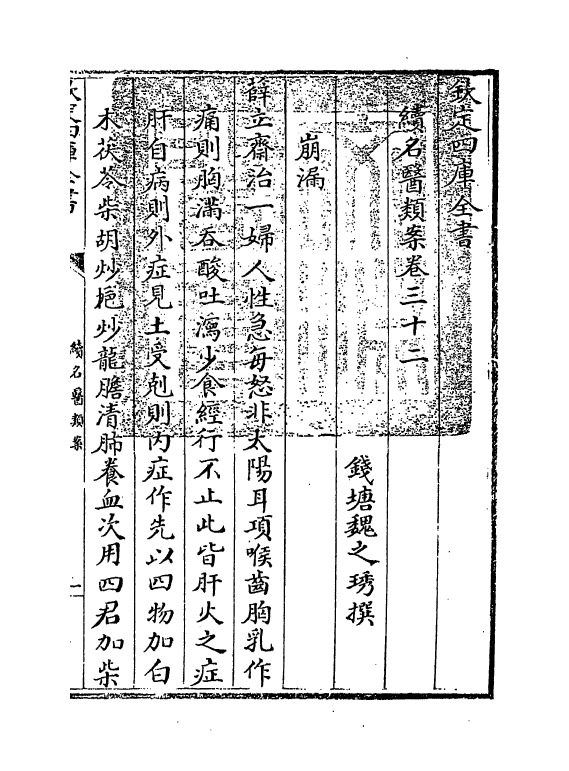 欽定四庫全書
續名醫類案卷三十二
錢塘魏之琇撰
崩漏
薛立齋治一婦人性急每怒非太陽耳項喉齒胸乳作
痛則胸滿吞酸吐瀉少食經行不止此皆肝火之症
肝自病則外症見土受剋則内症作先以四物加白
木茯苓柴胡炒梔炒龍膽清肺養血次用四君加柴
欽定四庫全書
續名醫類案
一